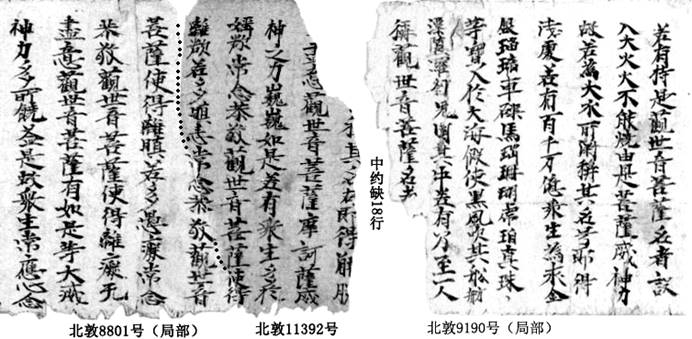 若有持是觀世音菩薩名者設
入大火火不能燒由是菩薩威神力
故若為大水所漂稱其名号即得
淺處若有百千万億衆生為求金
銀琉璃車磲馬瑙珊瑚虎珀真珠
等寶入於大海假使黑風吹其船舫
漂墮羅刹鬼國其中若有乃至一人
稱觀世音菩薩名者
中约缺18行
即得解脱
盡意觀世音菩薩摩訶薩威
神之力巍巍如是若有衆生多於
婬欲常念恭敬觀世音菩薩便得
離欲若多瞋恚常念恭敬觀世音
菩薩便得離瞋若多愚癡常念
恭敬觀世音菩薩便得離癡无
盡意觀世音菩薩有如是等大威
神力多所饒益是故衆生常應心念
北敦8801号（局部）
北敦11392号
北敦9190号（局部）